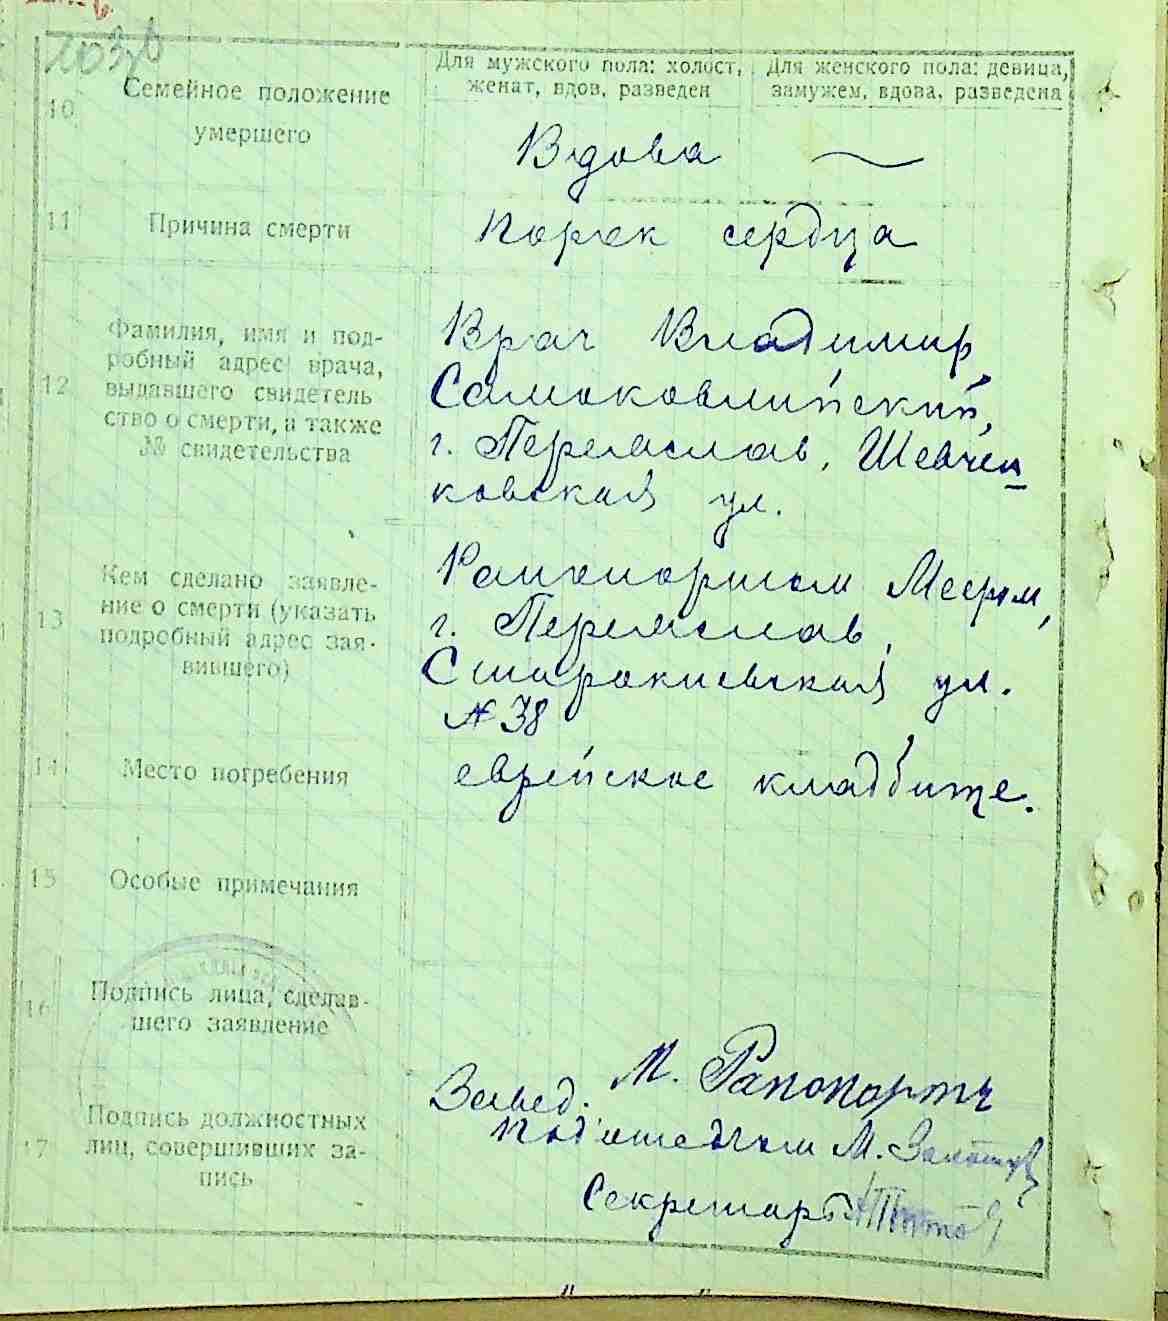 10
Семейное положение
умершего
Для мужского пола: холост,
женат, вдов, разведен
Для женского пола: девица,
замужем, вдова, разведена
Вдова
11
Причина смерти
порок сердца
12
Фамилия, имя и под-
робный адрес врача,
выдавшего свидетель
ство о смерти, а также
№ свидетельства
Врач Владимир
Самоковлийский,
г. Переяслав, Шевчен
ковская ул.
13
Кем сделано заявле-
ние о смерти (указать
подробный адрес зая-
вившего)
Рапопортом Меером,
г. Переяслав,
Старокиевская ул.
№ 38
14
Место погребения
еврейское кладбище.
15
Особые примечания
16
Подпись лица, сделав-
шего заявление
М. Рапопортъ
17
Подпись должностных
лиц, совершивших за-
пись
Завед.
Под'отделом М.
Секретарь